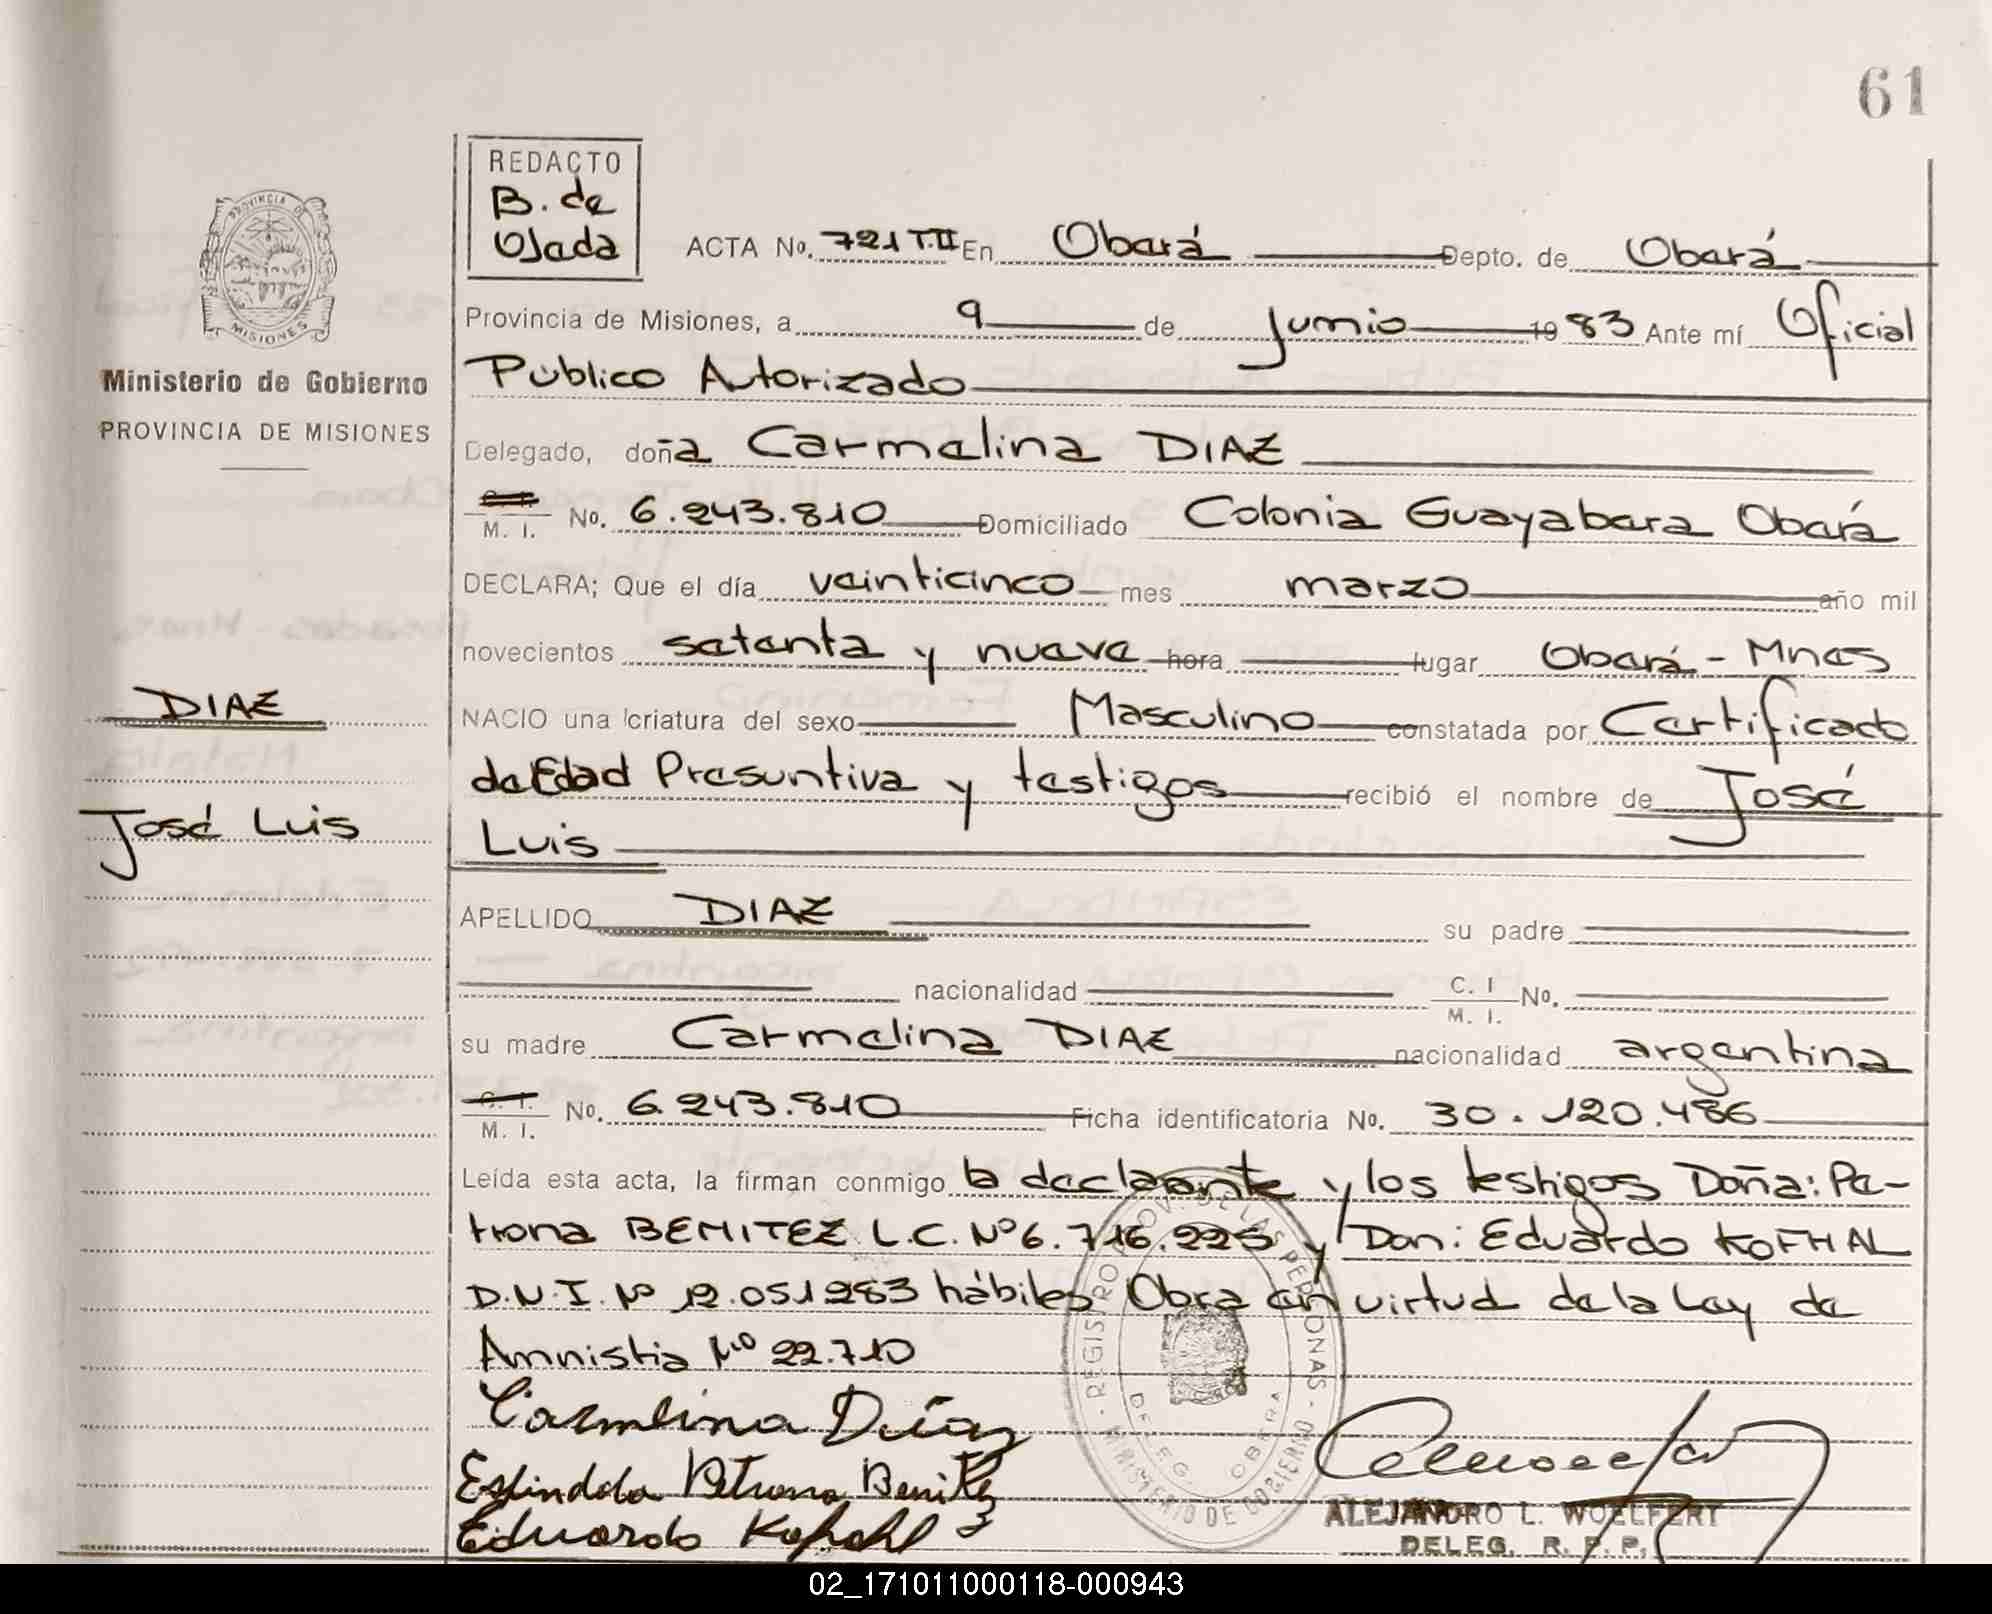 61
REDACTO
B. de
Ojeda
ACTA No. 721 T.II En Oberá Depto. de Oberá
Provincia de Misiones, a 9 de Junio 1983 Ante mí Oficial
Público Autorizado
Delegado, doña Carmelina DIAZ
C. I.
M. I. No. 6.243.810 Domiciliado Colonia Guayabera Oberá
DECLARA; Que el día veinticinco mes marzo año mil
novecientos setenta y nueve hora lugar Oberá - Mnes
NACIO una criatura del sexo Masculino constatada por Certificado
de Edad Presuntiva y testigos recibió el nombre de José
Luis
APELLIDO DIAZ su padre
nacionalidad C. I
M. I. No.
su madre Carmelina DIAZ nacionalidad argentina
C. I.
M. I. No. 6.243.810 Ficha identificatoria No. 30.120.486
Leída esta acta, la firman conmigo la declarante y los testigos Doña: Pe-
trona BENITEZ L.C. Nº 6.716.225 y Don: Eduardo KOFHAL
D.N.I. Nº 12.051283 hábiles Obra en virtud de la Ley de
Amnistia Nº 22.710
Carmelina Díaz
Espindola Petrona Benitez
Eduardo Kofahl
ALEJANDRO L. WOELFERT
DELEG. R. P. P.
REGISTRO PROV. DE LAS PERSONAS - MINISTERIO DE GOBIERNO -
DELEG. OBERA
PROVINCIA DE
MISIONES
Ministerio de Gobierno
PROVINCIA DE MISIONES
DIAZ
José Luis
02_171011000118-000943